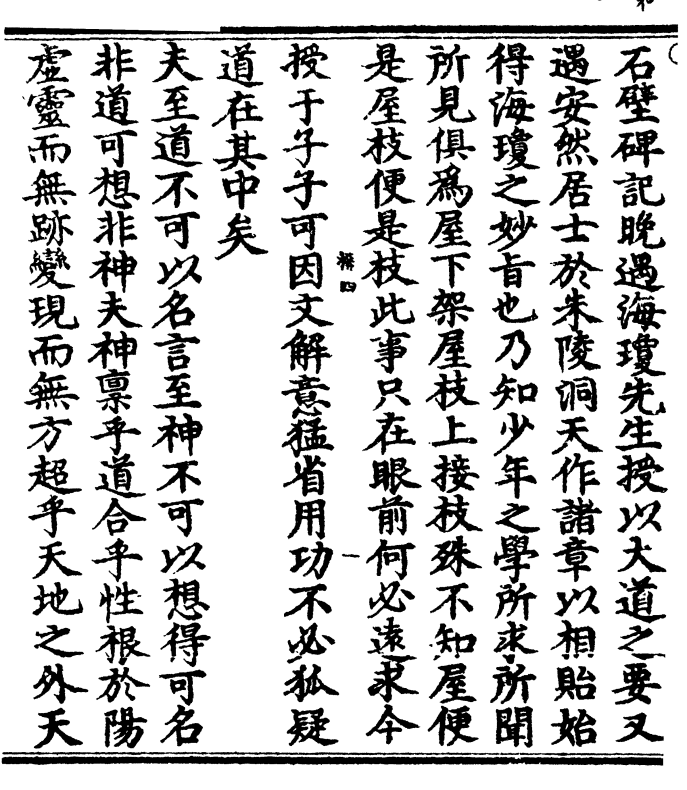 石壁碑記晚遇海瓊先生授以大道之要又
遇安然居士於朱陵洞天作諸章以相貽始
得海瓊之妙旨也乃知少年之學所求所聞
所見俱爲屋下架屋枝上接枝殊不知屋便
是屋枝便是枝此事只在眼前何必遠求今
授于子子可因文解意猛省用功不必狐疑
道在其中矣
夫至道不可以名言至神不可以想得可名
非道可想非神夫神禀乎道合乎性根於陽
虚靈而無跡變現而無方超乎天地之外天